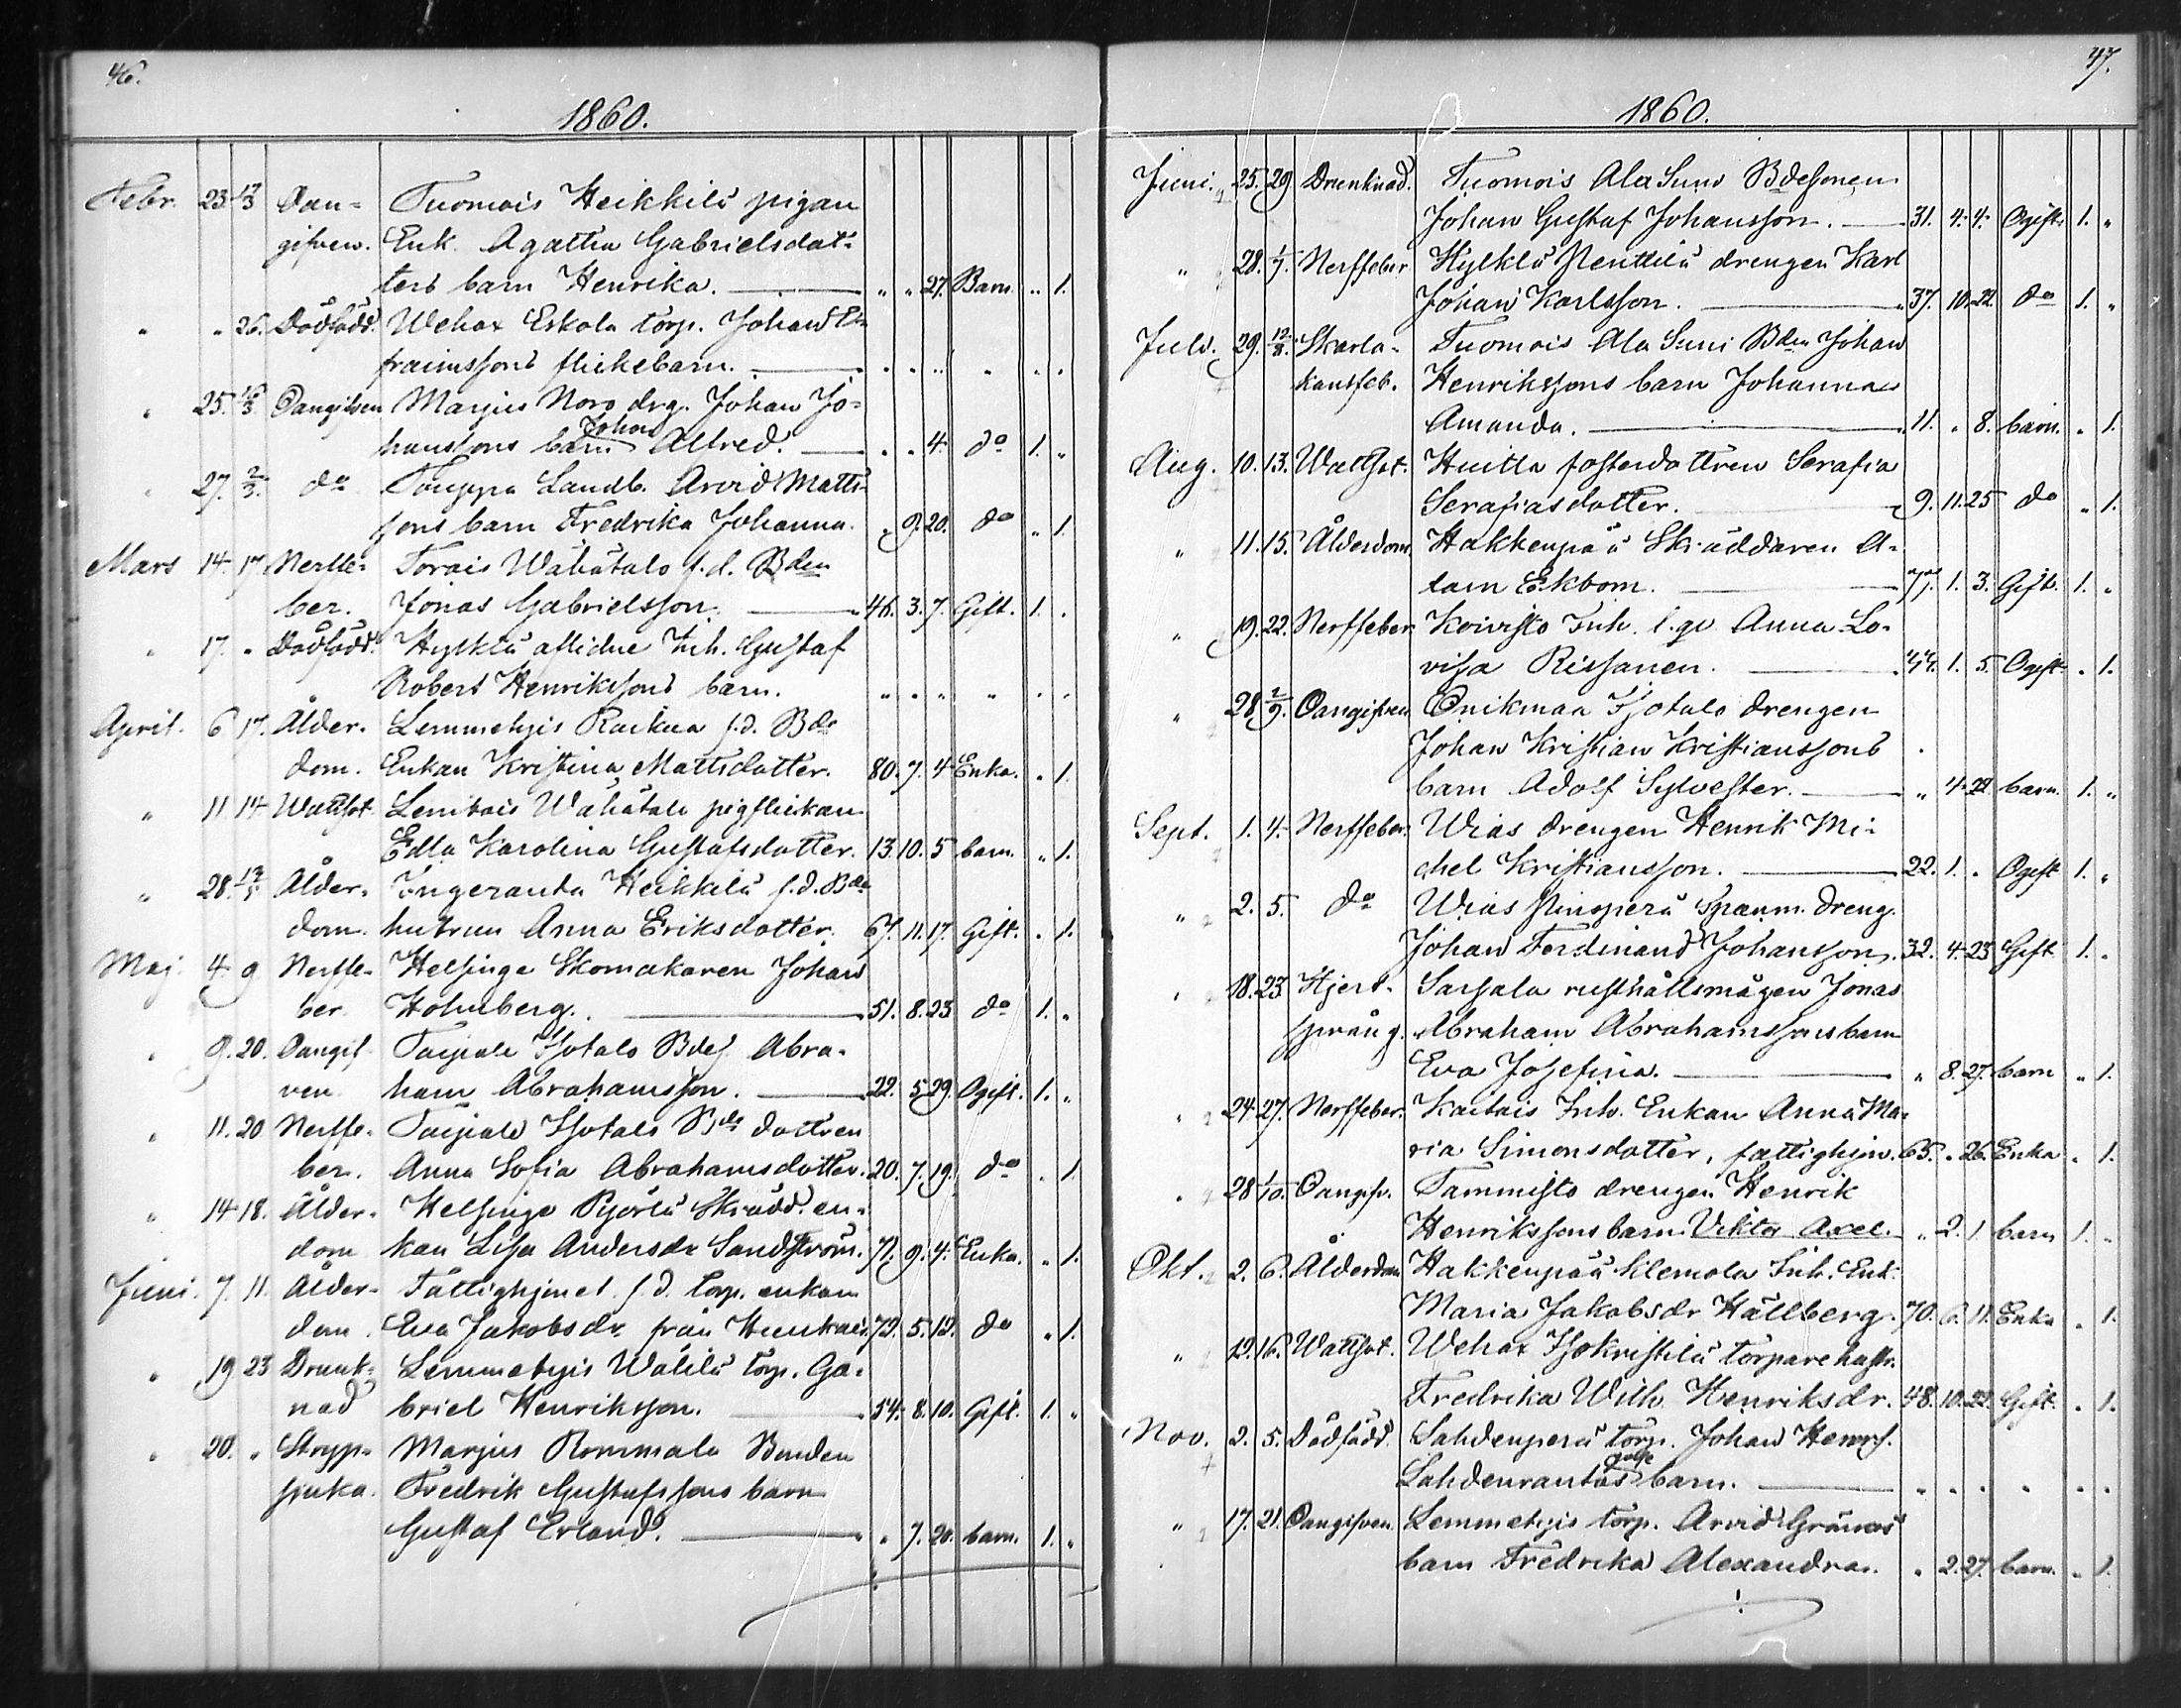 46.
1860.
Febr. 23. 17/3 Oan- Tuomois Heikkilä pigan
gifven. Enk. Agatha Gabrielsdot-
ters barn Henrika. " " 27. Barn " 1.
" " 26. Dödfödd. Wehax Eskola torp. Johan E-
fraimssons flickebarn. " " " " " "
" 25. 16/3 Oangifven Marjus Noro drg. Johan Jo-
hanssons barn Johan Alfred. " " 4. do 1. "
" 27. 2/3. do Touppa Landb. Arvid Matts-
sons barn Fredrika Johanna. " 9. 20. do " 1.
Mars 14. 17. Nerffe- Torais Wähätalo f.d. Bden
ber. Jonas Gabrielsson. 46. 3. 7. Gift. 1. "
" 17. " Dödfödd. Hylklä aflidne Inh. Gustaf
Robert Henrikssons barn. " " " " " "
April. 6 17. Ålder- Lemmetyis Raikua f.d. Bde
dom. Enkan Kristina Mattsdotter. 80. 7. 4. Enka. " 1.
" 11 14 Wattsot Lenikais Wähätalo pigflickan
Edla Karolina Gustafsdotter. 13. 10. 5 barn. " 1.
" 28. 13/5 Ålder- Yngeranta Heikkilä f.d. Bde
dom. hustrun Anna Eriksdotter. 67. 11. 17. Gift. " 1.
Maj. 4. 9 Nerffe- Helsinge Skomakaren Johan
ber. Holmberg. 51. 8. 23 do 1. "
" 9. 20. Oangif- Taipale Isotalo Bdes. Abra-
ven. ham Abrahamsson. 22. 5. 29. Ogift. 1. "
" 11. 20 Nerffe- Taipale Isotalo Bde dottren
ber. Anna Sofia Abrahamsdotter. 20. 7. 19. do " 1.
" 14. 18. Ålder- Helsinge Pyörlä Skrädd. en-
dom kan Lisa Andersdr Sandström. 71. 9. 4. Enka. " 1.
Juni. 7. 11. Ålder- Fattighjonet f.d. torp. enkan
dom. Eva Jakobsdr från Hunkais. 72. 5. 12. do " 1.
" 19 23 Drunk- Lemmetyis Wälilä torp. Ga-
nad briel Henriksson. 54. 8. 10. Gift. 1. "
" 20. " Stryp- Marjus Rommala Bonden
sjuka. Fredrik Gustafssons barn
Gustaf Erland. " 7. 20. barn. 1. "
47.
1860.
Juni. 25. 29. Drunknad. Tuomois Ala Suni Bdesonen
Johan Gustaf Johansson. 31. 4. 4. Ogift. 1. "
" 28. 1/7. Nerffeber Hylklä Penttilä drengen Karl
Johan Karlsson. 37. 10. 22. do 1. "
Juli. 29. 12/8. Skarla- Tuomois Ala Suni Bden Johan
kansfeb. Henrikssons barn Johanna
Amanda. 11. " 8. barn. " 1.
Aug. 10. 13. Wattsot. Huitla fosterdottren Serafia
Serafiasdotter. 9. 11. 25 do " 1.
" 11. 15. Ålderdom. Hakkenpää Skräddaren A-
dam Ekbom. 77. 1. 3. Gift. 1. "
" 19. 22. Nerffeber. Koivisto Inh. l. qv. Anna Lo-
visa Rissanen. 44. 1. 5. Ogift. " 1.
" 28. 2/9. Oangifven Onikmaa Isotalo drengen
Johan Kristian Kristianssons
barn Adolf Sylvester. " 4. 22. barn. 1. "
Sept. 1. 4. Nerffeber. Wias drengen Henrik Mi-
chel Kristiansson. 22. 1. " Ogift 1. "
" 2. 5. do Wias Pinoperä Spanm. dreng.
Johan Ferdinand Johansson. 32. 4. 23 Gift 1. "
" 18. 23. Hjert- Sarsala rusthållsmågen Jonas
språng. Abraham Abrahamssons barn
Eva Josefina. " 8. 27. barn " 1.
" 24. 27. Nerffeber. Kaitais Inh. Enkan Anna Ma-
ria Simonsdotter, fattighjon. 65. " 26. Enka " 1.
" 28 1/10. Oangifv. Tammisto drengen Henrik
Henrikssons barn Viktor Axel. " 2. 1 barn 1. "
Okt. 2. 6. Ålderdom Hakkenpää Klemola Inh. Enk.
Maria Jakobsdr Hällberg. 70. 6. 11. Enka " 1.
" 12. 16. Wattsot. Wehax Isokristilä torpare hustr.
Fredrika Wilh. Henriksdr. 48. 10. 22. Gift. " 1.
Nov. 2. 5. Dödfödd. Lahdenperä torp. Johan Henrs.
Lahdenrantas gosse barn. " " " " " "
" 17. 21. Oangifven. Lemmetyis torp. Arvid Grönroos
barn Fredrika Alexandra. " 2. 27. barn. " 1.